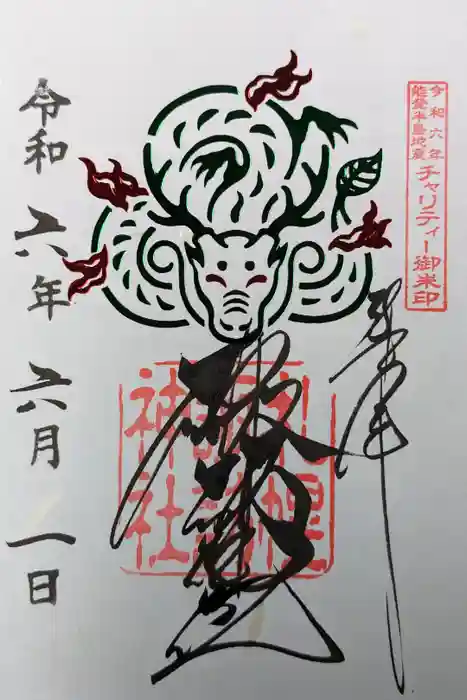 令和六年
能登半島地震
チャリティー御朱印
奉拝
札幌
諏訪
神社
令和六年六月一日